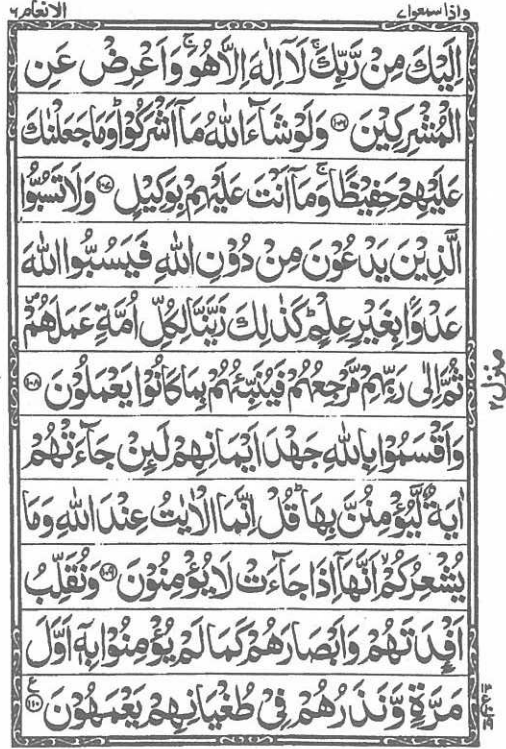 واذا سمعوا ٧ الانعام ٦
اِلَیْكَ مِنْ رَّبِّكَ ۚ لَاۤ اِلٰهَ اِلَّا هُوَ ۚ وَ اَعْرِضْ عَنِ
الْمُشْرِكِیْنَ ۝۱۰۶ وَ لَوْ شَآءَ اللّٰهُ مَاۤ اَشْرَكُوْا ؕ وَ مَا جَعَلْنٰكَ
عَلَیْهِمْ حَفِیْظًا ۚ وَ مَاۤ اَنْتَ عَلَیْهِمْ بِوَكِیْلٍ ۝۱۰۷ وَ لَا تَسُبُّوا
الَّذِیْنَ یَدْعُوْنَ مِنْ دُوْنِ اللّٰهِ فَیَسُبُّوا اللّٰهَ
عَدْوًۢا بِغَیْرِ عِلْمٍ ؕ كَذٰلِكَ زَیَّنَّا لِكُلِّ اُمَّةٍ عَمَلَهُمْ ۪
ثُمَّ اِلٰى رَبِّهِمْ مَّرْجِعُهُمْ فَیُنَبِّئُهُمْ بِمَا كَانُوْا یَعْمَلُوْنَ ۝۱۰۸
وَ اَقْسَمُوْا بِاللّٰهِ جَهْدَ اَیْمَانِهِمْ لَىِٕنْ جَآءَتْهُمْ
اٰیَةٌ لَّیُؤْمِنُنَّ بِهَا ؕ قُلْ اِنَّمَا الْاٰیٰتُ عِنْدَ اللّٰهِ وَ مَا
یُشْعِرُكُمْ ۙ اَنَّهَاۤ اِذَا جَآءَتْ لَا یُؤْمِنُوْنَ ۝۱۰۹ وَ نُقَلِّبُ
اَفْـِٕدَتَهُمْ وَ اَبْصَارَهُمْ كَمَا لَمْ یُؤْمِنُوْا بِهٖۤ اَوَّلَ
مَرَّةٍ وَّ نَذَرُهُمْ فِیْ طُغْیَانِهِمْ یَعْمَهُوْنَ ۝۱۱۰ ع
منزل ٢